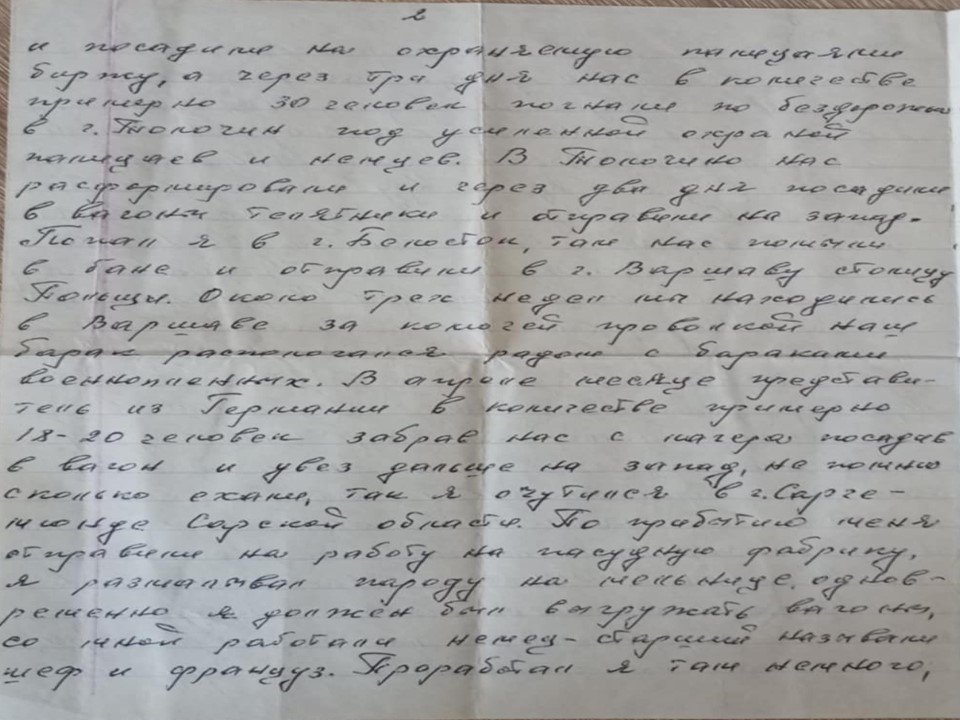 2
и посадили на охраняемую полицаями
биржу, а через три дня нас в количестве
примерно 30 человек погнали по бездорожью
в г. Толочин под усиленной охраной
полицаев и немцев. В Толочино нас
расформировали и через два дня посадили
в вагоны телятники и отправили на запад.
Попал я в г. Белосток, там нас помыли
в бане и отправили в г. Варшаву столицу
Польщи. Около трех недел мы находились
в Варшаве за колючей проволкой наш
барак распологался рядом с бараками
военнопленных. В апреле месяце представи-
тель из Германии в количестве примерно
18-20 человек забрав нас с лагеря посадив
в вагон и увез дальше на запад, не помню
сколько ехали, так я очутился в г. Сарге-
мюнде Сарской области. По прибытию меня
отправили на работу на пасудную фабрику,
я размалывал породу на мельнице, однов-
ременно я должен был выгружать вагоны,
со мной работали немец-старший называли
шеф и француз. Проработал я там немного,